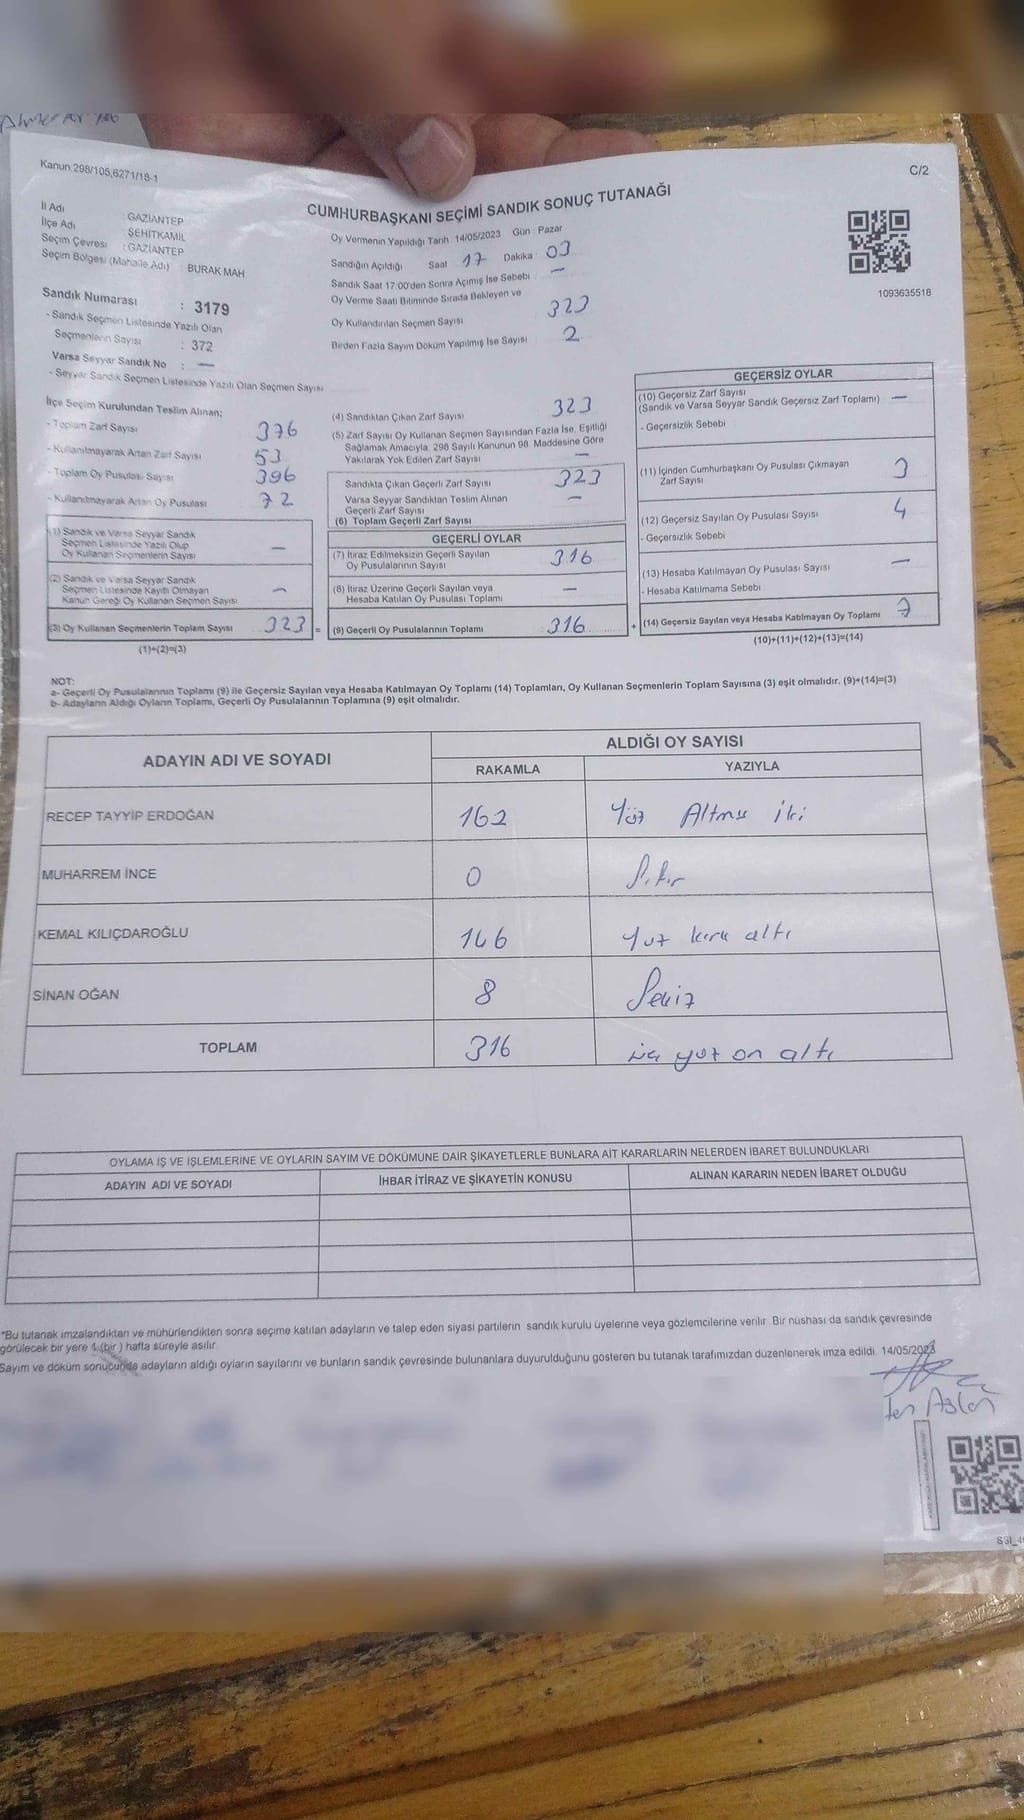 Kanun 298/105,6271/18-1
C/2
CUMHURBAŞKANI SEÇİMİ SANDIK SONUÇ TUTANAĞI
İl Adı GAZİANTEP
İlçe Adı ŞEHİTKAMİL
Seçim Çevresi : GAZİANTEP
Seçim Bölgesi (Mahalle Adı) BURAK MAH
Oy Vermenin Yapıldığı Tarih 14/05/2023 Gün Pazar
Sandığın Açıldığı Saat 17 Dakika 03
Sandık Saat 17:00'den Sonra Açımış İse Sebebi : —
Oy Verme Saati Bitiminde Sırada Bekleyen ve
Oy Kullandırılan Seçmen Sayısı 323
Birden Fazla Sayım Döküm Yapılmış İse Sayısı 2
1093635518
Sandık Numarası : 3179
- Sandık Seçmen Listesinde Yazılı Olan
Seçmenlerin Sayısı : 372
Varsa Seyyar Sandık No : —
- Seyyar Sandık Seçmen Listesinde Yazılı Olan Seçmen Sayısı
İlçe Seçim Kurulundan Teslim Alınan;
- Toplam Zarf Sayısı 376
- Kullanılmayarak Artan Zarf Sayısı 53
- Toplam Oy Pusulası Sayısı 396
- Kullanılmayarak Artan Oy Pusulası 72
(1) Sandık ve Varsa Seyyar Sandık
Seçmen Listesinde Yazılı Olup
Oy Kullanan Seçmenlerin Sayısı —
(2) Sandık ve Varsa Seyyar Sandık
Seçmen Listesinde Kayıtlı Olmayan
Kanun Gereği Oy Kullanan Seçmen Sayısı —
(3) Oy Kullanan Seçmenlerin Toplam Sayısı 323 =
(1)+(2)=(3)
(4) Sandıktan Çıkan Zarf Sayısı 323
(5) Zarf Sayısı Oy Kullanan Seçmen Sayısından Fazla İse, Eşitliği
Sağlamak Amacıyla, 298 Sayılı Kanunun 98. Maddesine Göre
Yakılarak Yok Edilen Zarf Sayısı —
Sandıkta Çıkan Geçerli Zarf Sayısı 323
Varsa Seyyar Sandıktan Teslim Alınan
Geçerli Zarf Sayısı —
(6) Toplam Geçerli Zarf Sayısı
GEÇERLİ OYLAR
(7) İtiraz Edilmeksizin Geçerli Sayılan
Oy Pusulalarının Sayısı 316
(8) İtiraz Üzerine Geçerli Sayılan veya
Hesaba Katılan Oy Pusulası Toplamı —
(9) Geçerli Oy Pusulalarının Toplamı 316 +
GEÇERSİZ OYLAR
(10) Geçersiz Zarf Sayısı
(Sandık ve Varsa Seyyar Sandık Geçersiz Zarf Toplamı) —
- Geçersizlik Sebebi
(11) İçinden Cumhurbaşkanı Oy Pusulası Çıkmayan
Zarf Sayısı 3
(12) Geçersiz Sayılan Oy Pusulası Sayısı 4
- Geçersizlik Sebebi
(13) Hesaba Katılmayan Oy Pusulası Sayısı —
- Hesaba Katılmama Sebebi
(14) Geçersiz Sayılan veya Hesaba Katılmayan Oy Toplamı 7
(10)+(11)+(12)+(13)=(14)
NOT:
a- Geçerli Oy Pusulalarının Toplamı (9) ile Geçersiz Sayılan veya Hesaba Katılmayan Oy Toplamı (14) Toplamları, Oy Kullanan Seçmenlerin Toplam Sayısına (3) eşit olmalıdır. (9)+(14)=(3)
b- Adayların Aldığı Oyların Toplamı, Geçerli Oy Pusulalarının Toplamına (9) eşit olmalıdır.
ADAYIN ADI VE SOYADI
ALDIĞI OY SAYISI
RAKAMLA YAZIYLA
RECEP TAYYİP ERDOĞAN 162 Yüz Altmış iki
MUHARREM İNCE 0 Sıfır
KEMAL KILIÇDAROĞLU 146 Yuz kırk altı
SİNAN OĞAN 8 Sekiz
TOPLAM 316 üç yuz on altı
OYLAMA İŞ VE İŞLEMLERİNE VE OYLARIN SAYIM VE DÖKÜMÜNE DAİR ŞİKAYETLERLE BUNLARA AİT KARARLARIN NELERDEN İBARET BULUNDUKLARI
ADAYIN ADI VE SOYADI İHBAR İTİRAZ VE ŞİKAYETİN KONUSU ALINAN KARARIN NEDEN İBARET OLDUĞU
*Bu tutanak imzalandıktan ve mühürlendikten sonra seçime katılan adayların ve talep eden siyasi partilerin sandık kurulu üyelerine veya gözlemcilerine verilir. Bir nüshası da sandık çevresinde
görülecek bir yere 1 (bir) hafta süreyle asılır.
Sayım ve döküm sonucunda adayların aldığı oyların sayılarını ve bunların sandık çevresinde bulunanlara duyurulduğunu gösteren bu tutanak tarafımızdan düzenlenerek imza edildi. 14/05/2023